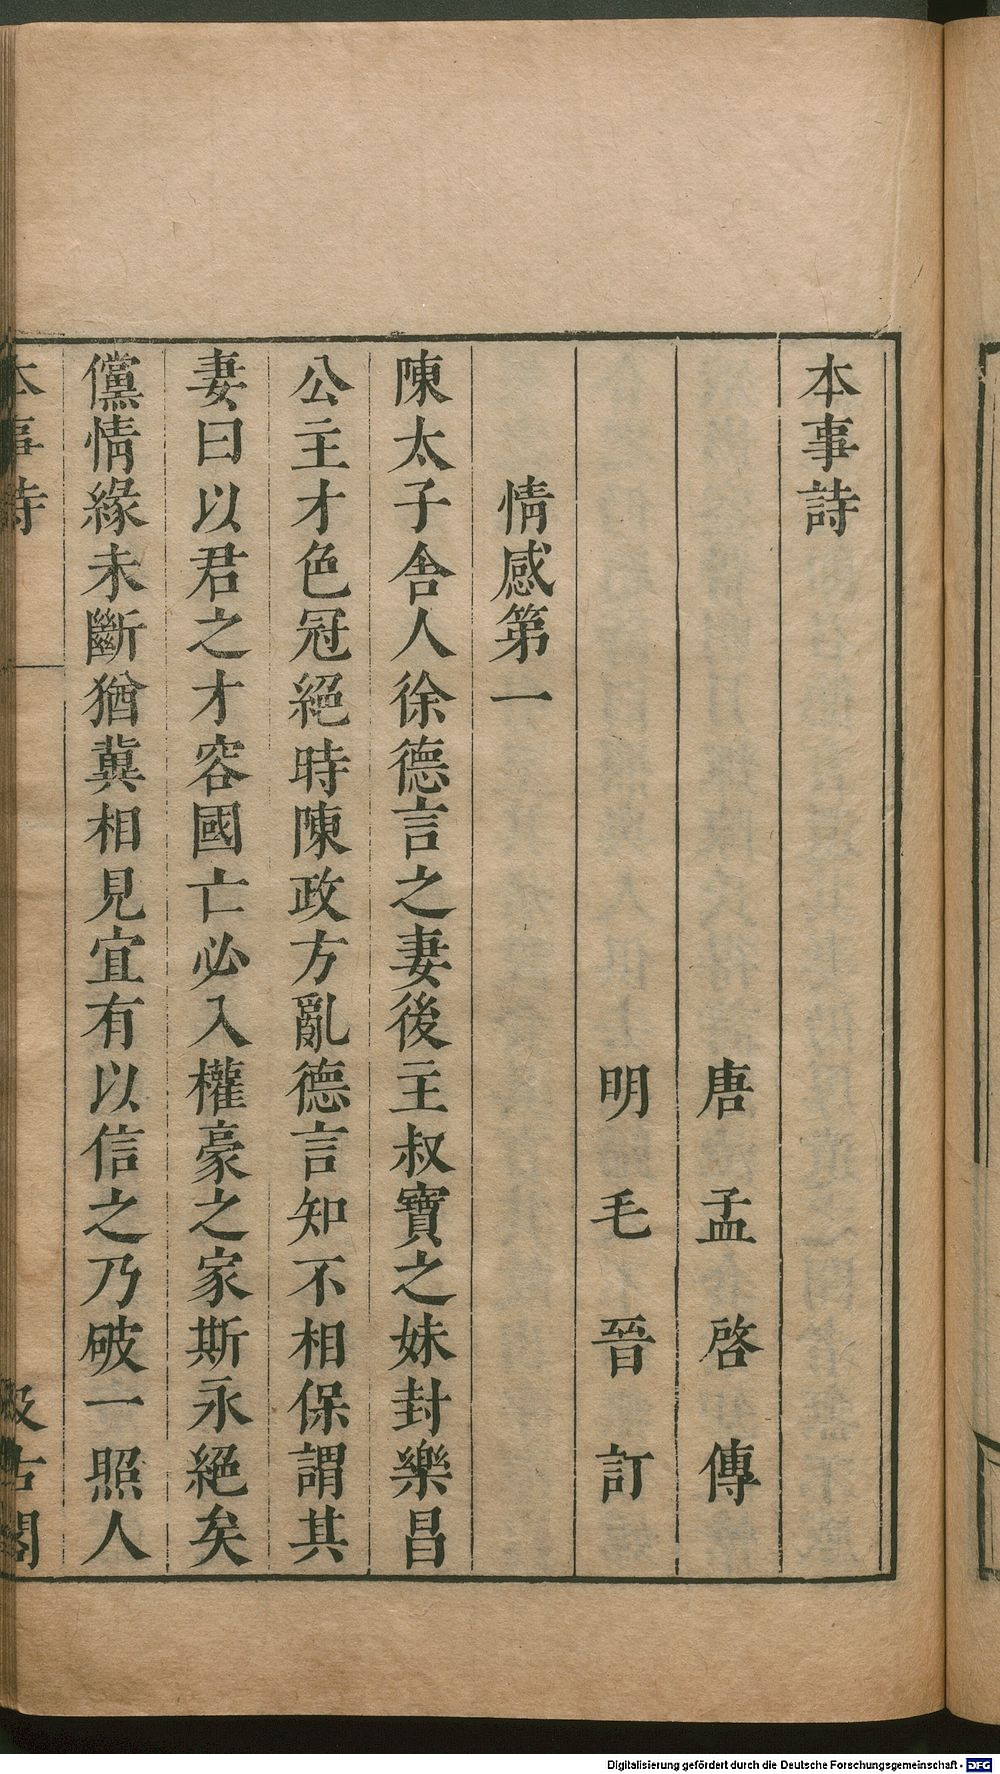 本事詩
唐孟啓傳
明毛晉訂
情感第一
陳太子舎人徐德言之妻後主叔寶之妹封樂昌
公主才色冠絕時陳政方亂德言知不相保謂其
妻曰以君之才容國亡必入權豪之家斯永絕矣
儻情緣未斷猶冀相見宜有以信之乃破一照人
本事詩
汲古閣
Digitalisierung gefördert durch die Deutsche Forschungsgemeinschaft - DFG